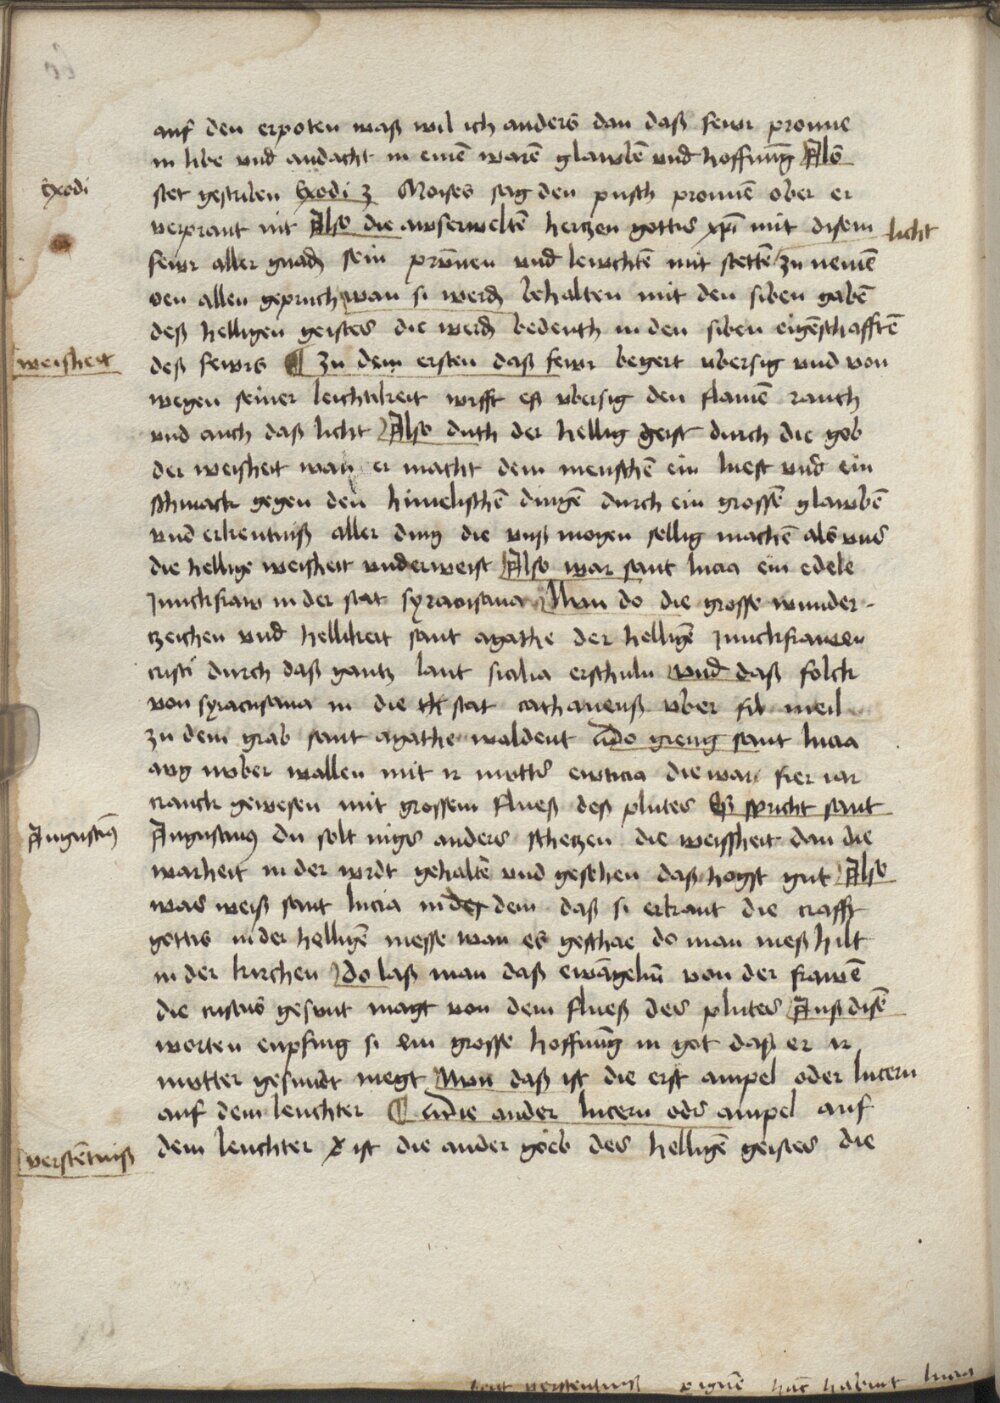 auf den erpoten waß wil ich anders dan daß fewr pronne
in libe vnd andacht in einē warē glawbē vnd hoffnūg Als
Exodi
stet gescriben Exodi 3 Moises sag den pusch pronnē ober er
verprant nit Also die awserweltē hertzen gottis xpī mit disem licht
fewr aller gnad sein prōnen vnd lewchtē mit stettē zu nemē
ven allen gepruch wan si werd behalten mit den siben gabē
deß helligen geistes die werd bedenth in den siben eigēschafftē
weisheit
deß fewrs ¶ zu dem ersten daß fewr begert vbersig vnd von
wegen seiner leichtikeit wifft eß vbersig den flamē rauch
vnd auch daß licht Also duth der hellig geist durch die gob
der weisheit wan er macht dem menschē ein luest vnd ein
schmack gegen den himelischē dingē durch ein grossē glawbē
vnd erkentniß aller ding die vnß mogen sellig machē als vns
die hellige weisheit vnderweist Also war sant lucia ein edele
Junckfraw in der stat syracusana Wan do die grosse wunder-
tzeichen vnd hellikeit sant agathe der helligē Junckfrawen
cristi durch daß gantz lant sicilia erschuln vnd daß folck
von syracusana in die stat cathanenß vber fil meil
zu dem grab sant agathe waldent do gieng sant lucia
aug nvber wallen mit ir mutter ewticia die war fier iar
cranck gewesen mit grossem flueß deß plutes Es spricht sant
Augustin9
Augustinus du solt nigs anders schetzen die weissheit dan die
warheit in der wirdt gehaltē vnd gesehen daß hogst gut Also
was weiß sant lucia in dem daß si erkant die crafft
gottis in der helligē messe wan es geschae do man meß hilt
in der kirchen do laß man daß ewāgeliū von der frawē
die cristus gesunt magt von dem flueß des plutes Auß disē
worten enpfing si ein grosse hoffnūg in got daß er ir
mutter gesundt megt Wan daß ist die erst ampel oder lucern
auf dem leuchter ¶ die ander lucern oder ampel auf
verstētniß
dem leuchter ist die ander goeb des helligē geistes die